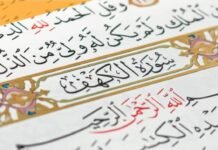 وَقُلِ الْحَمْدُ لِلَّهِ
الْمُلْكِ وَلَمْ يَكُن لَّهُ وَلِيٌّ مِّنَ
سُورَةُ الْكَهْفِ
اللَّهِ الرَّحْمَٰنِ الرَّحِيمِ
الْكِتَٰبَ